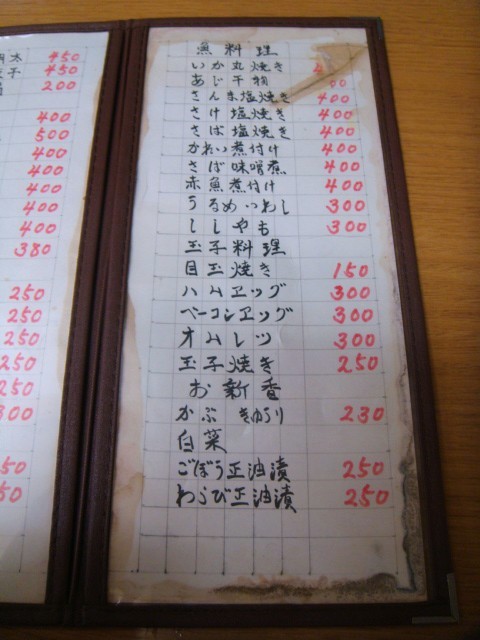 太 450
子 450
200
400
500
400
400
400
400
400
380
250
250
250
250
250
300
50
50
魚料理
いか丸焼き
あじ干物 00
さんま塩焼き 400
さけ塩焼き 400
さば塩焼き 400
かれい煮付け 400
さば味噌煮 400
赤魚煮付け 400
うるめいわし 300
ししゃも 300
玉子料理
目玉焼き 150
ハムエッグ 300
ベーコンエッグ 300
オムレツ 300
玉子焼き 250
お新香
かぶ きゅうり 230
白菜
ごぼう正油漬 250
わらび正油漬 250